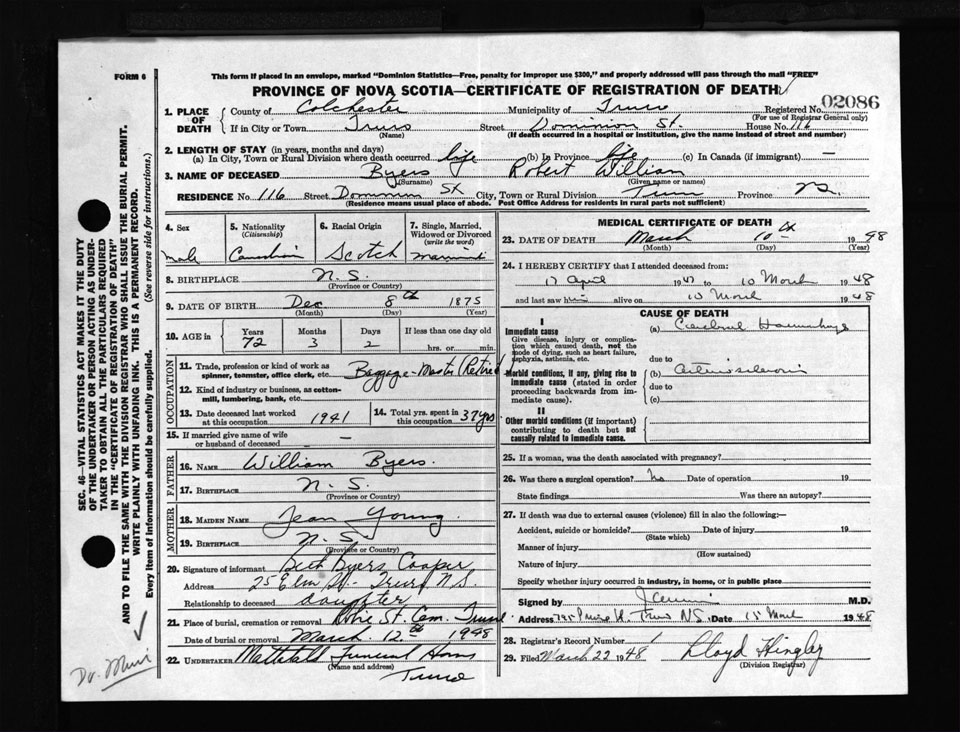 FORM 6
This form if placed in an envelope, marked "Dominion Statistics—Free, penalty for improper use $300," and properly addressed will pass through the mail "FREE"
PROVINCE OF NOVA SCOTIA—CERTIFICATE OF REGISTRATION OF DEATH
02086
1. PLACE OF DEATH
County of Colchester Municipality of Truro Registered No.
(For use of Registrar General only)
If in City or Town Truro Street Dominion St. House No. 116
(Name) (If death occurred in a hospital or institution, give the name instead of street and number)
2. LENGTH OF STAY (in years, months and days)
(a) In City, Town or Rural Division where death occurred life (b) In Province life (c) In Canada (if immigrant) —
3. NAME OF DECEASED Byers Robert William
(Surname) (Given name or names)
RESIDENCE No. 116 Street Dominion St City, Town or Rural Division Truro Province N.S.
(Residence means usual place of abode. Post Office Address for residents in rural parts not sufficient)
4. Sex
Male
5. Nationality (Citizenship)
Canadian
6. Racial Origin
Scotch
7. Single, Married, Widowed or Divorced (write the word)
Married
8. BIRTHPLACE N.S.
(Province or Country)
9. DATE OF BIRTH Dec 8th 1875
(Month) (Day) (Year)
10. AGE in
Years Months Days If less than one day old
72 3 2 hrs. or min.
OCCUPATION
11. Trade, profession or kind of work as spinner, teamster, office clerk, etc. Baggage-Master (Retired)
12. Kind of industry or business, as cotton-mill, lumbering, bank, etc.
13. Date deceased last worked at this occupation 1941
14. Total yrs. spent in this occupation 37 yrs.
15. If married give name of wife or husband of deceased —
FATHER
16. NAME William Byers.
17. BIRTHPLACE N.S.
(Province or Country)
MOTHER
18. MAIDEN NAME Jean Young
19. BIRTHPLACE N.S.
(Province or Country)
20. Signature of informant Beth Byers Cooper
Address 25 Elm St- Truro N.S.
Relationship to deceased daughter
21. Place of burial, cremation or removal Robie St. Cem. Truro
Date of burial or removal March 12th 1948
22. UNDERTAKER Mattatall Funeral Home
(Name and address)
Truro
MEDICAL CERTIFICATE OF DEATH
23. DATE OF DEATH March 10th 1948
(Month) (Day) (Year)
24. I HEREBY CERTIFY that I attended deceased from:
17 April 1947 to 10 March 1948
and last saw him alive on 10 March 1948
CAUSE OF DEATH
I
Immediate cause
Give disease, injury or complication which caused death, not the mode of dying, such as heart failure, asphyxia, asthenia, etc.
(a) Cerebral Haemorrhage
due to
Morbid conditions, if any, giving rise to immediate cause (stated in order proceeding backwards from immediate cause).
(b) Arteriosclerosis
due to
(c)
II
Other morbid conditions (if important) contributing to death but not causally related to immediate cause.
25. If a woman, was the death associated with pregnancy?
26. Was there a surgical operation? No Date of operation 19
State findings Was there an autopsy?
27. If death was due to external causes (violence) fill in also the following:—
Accident, suicide or homicide? Date of injury 19
(State which)
Manner of injury
(How sustained)
Nature of injury
Specify whether injury occurred in industry, in home, or in public place
Signed by M.D.
Address Truro NS Date 15 March 1948
28. Registrar's Record Number 1
29. Filed March 22 1948 Lloyd Hingley
(Division Registrar)
SEC. 46—VITAL STATISTICS ACT MAKES IT THE DUTY
OF THE UNDERTAKER OR PERSON ACTING AS UNDER-
TAKER TO OBTAIN ALL THE PARTICULARS REQUIRED
IN THE "CERTIFICATE OF REGISTRATION OF DEATH"
AND TO FILE THE SAME WITH THE DIVISION REGISTRAR WHO SHALL ISSUE THE BURIAL PERMIT.
WRITE PLAINLY WITH UNFADING INK. THIS IS A PERMANENT RECORD.
Every item of information should be carefully supplied. (See reverse side for instructions.)
Dr.